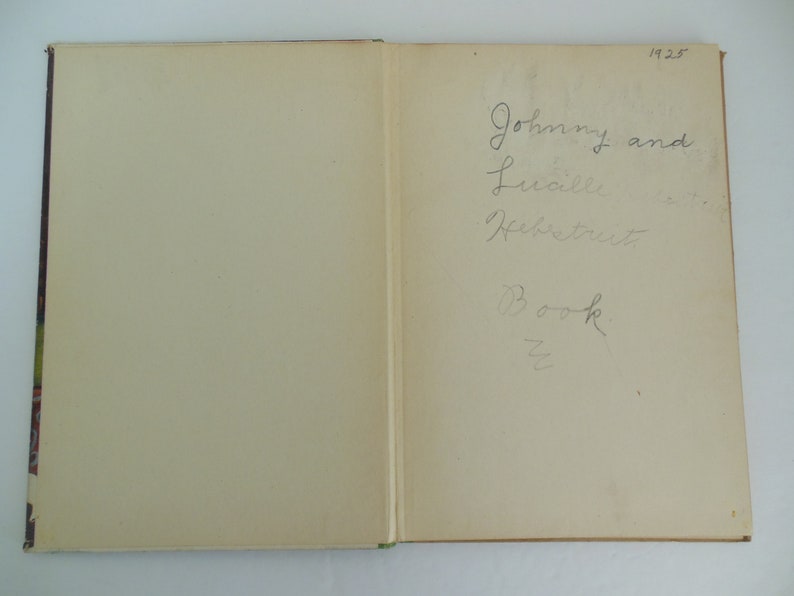 1925
Johnny and
Lucille
Hebestreit
Book